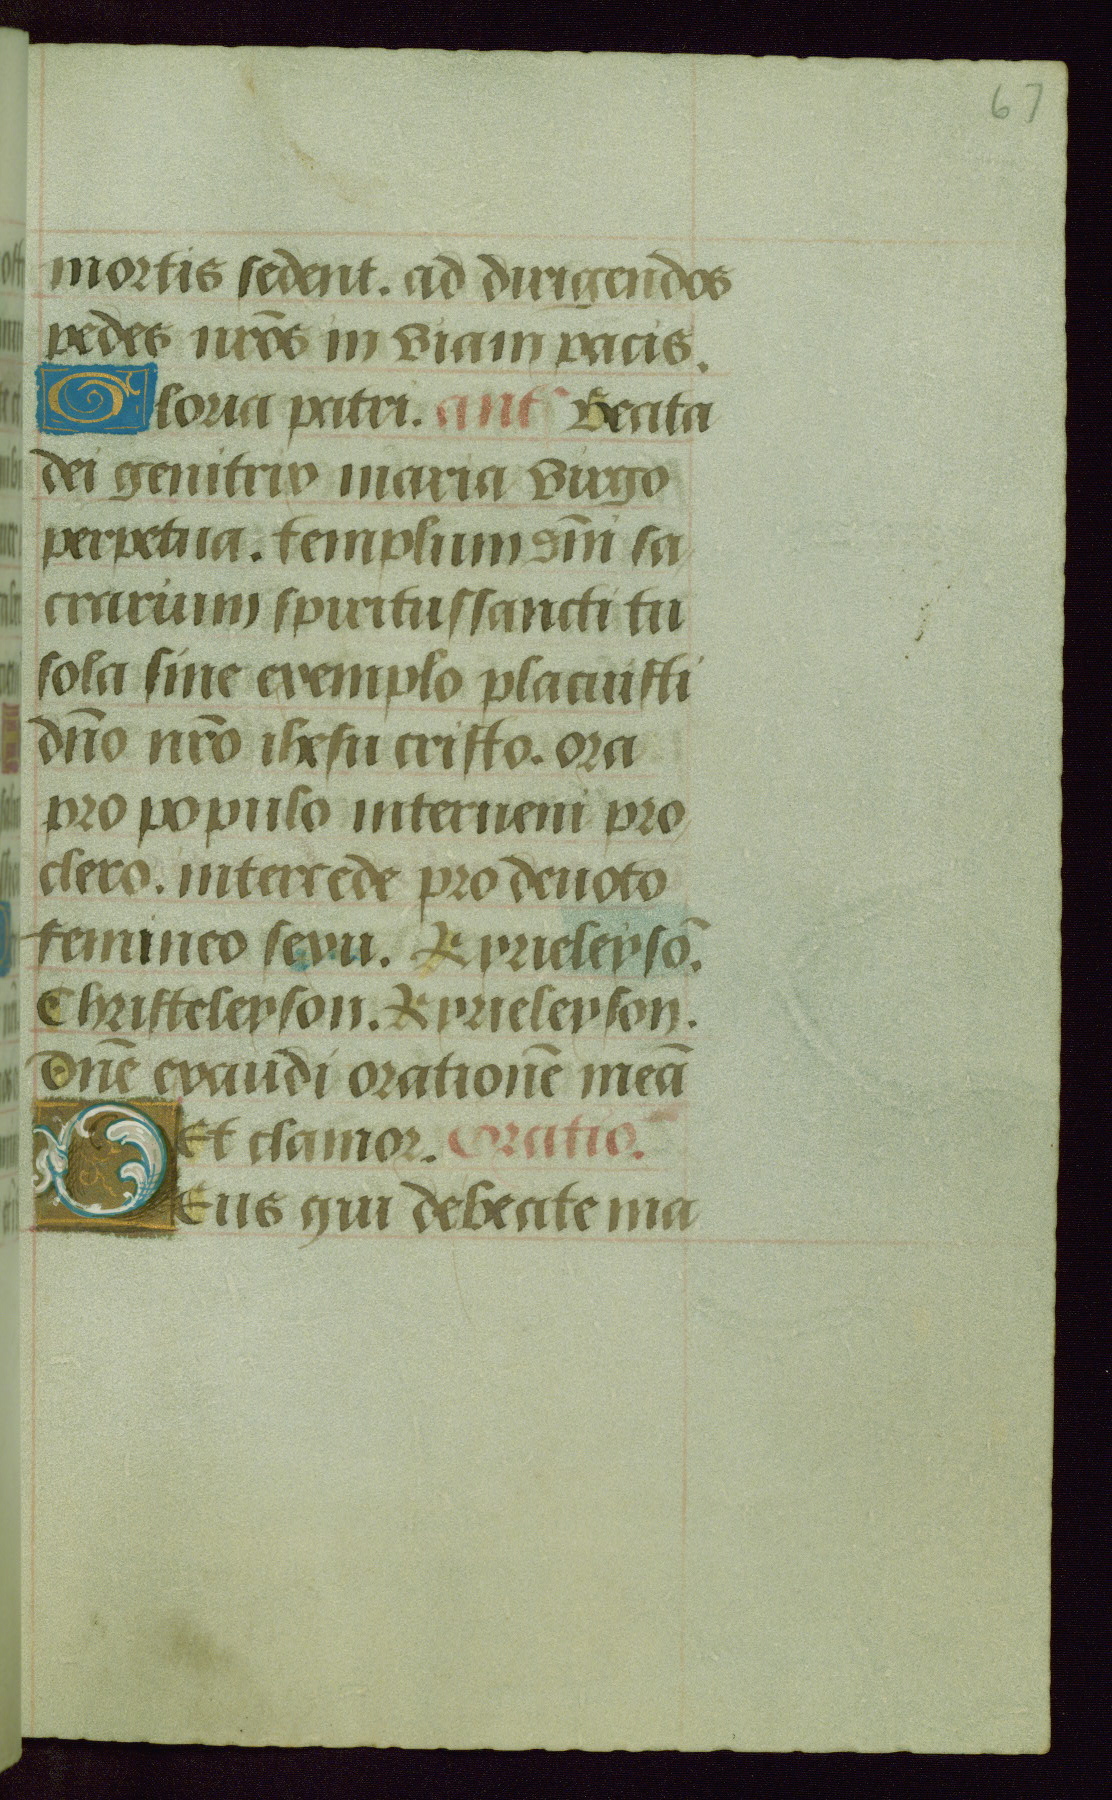 67
mortis sedent. ad dirigendos
pedes nr̄os in viam pacis.
Gloria patri. ant' Beata
dei genitrix maria virgo
perpetua. templum dn̄i sa
crarium spiritussancti tu
sola sine exemplo placuisti
dn̄o nr̄o ihesu cristo. ora
pro populo interueni pro
clero. intercede pro deuoto
femineo sexu. Kyrieleysō.
Christeleyson. Kyrieleyson.
Dn̄e exaudi orationē meā
Et clamor. Oratio.
DEus qui debeate ma